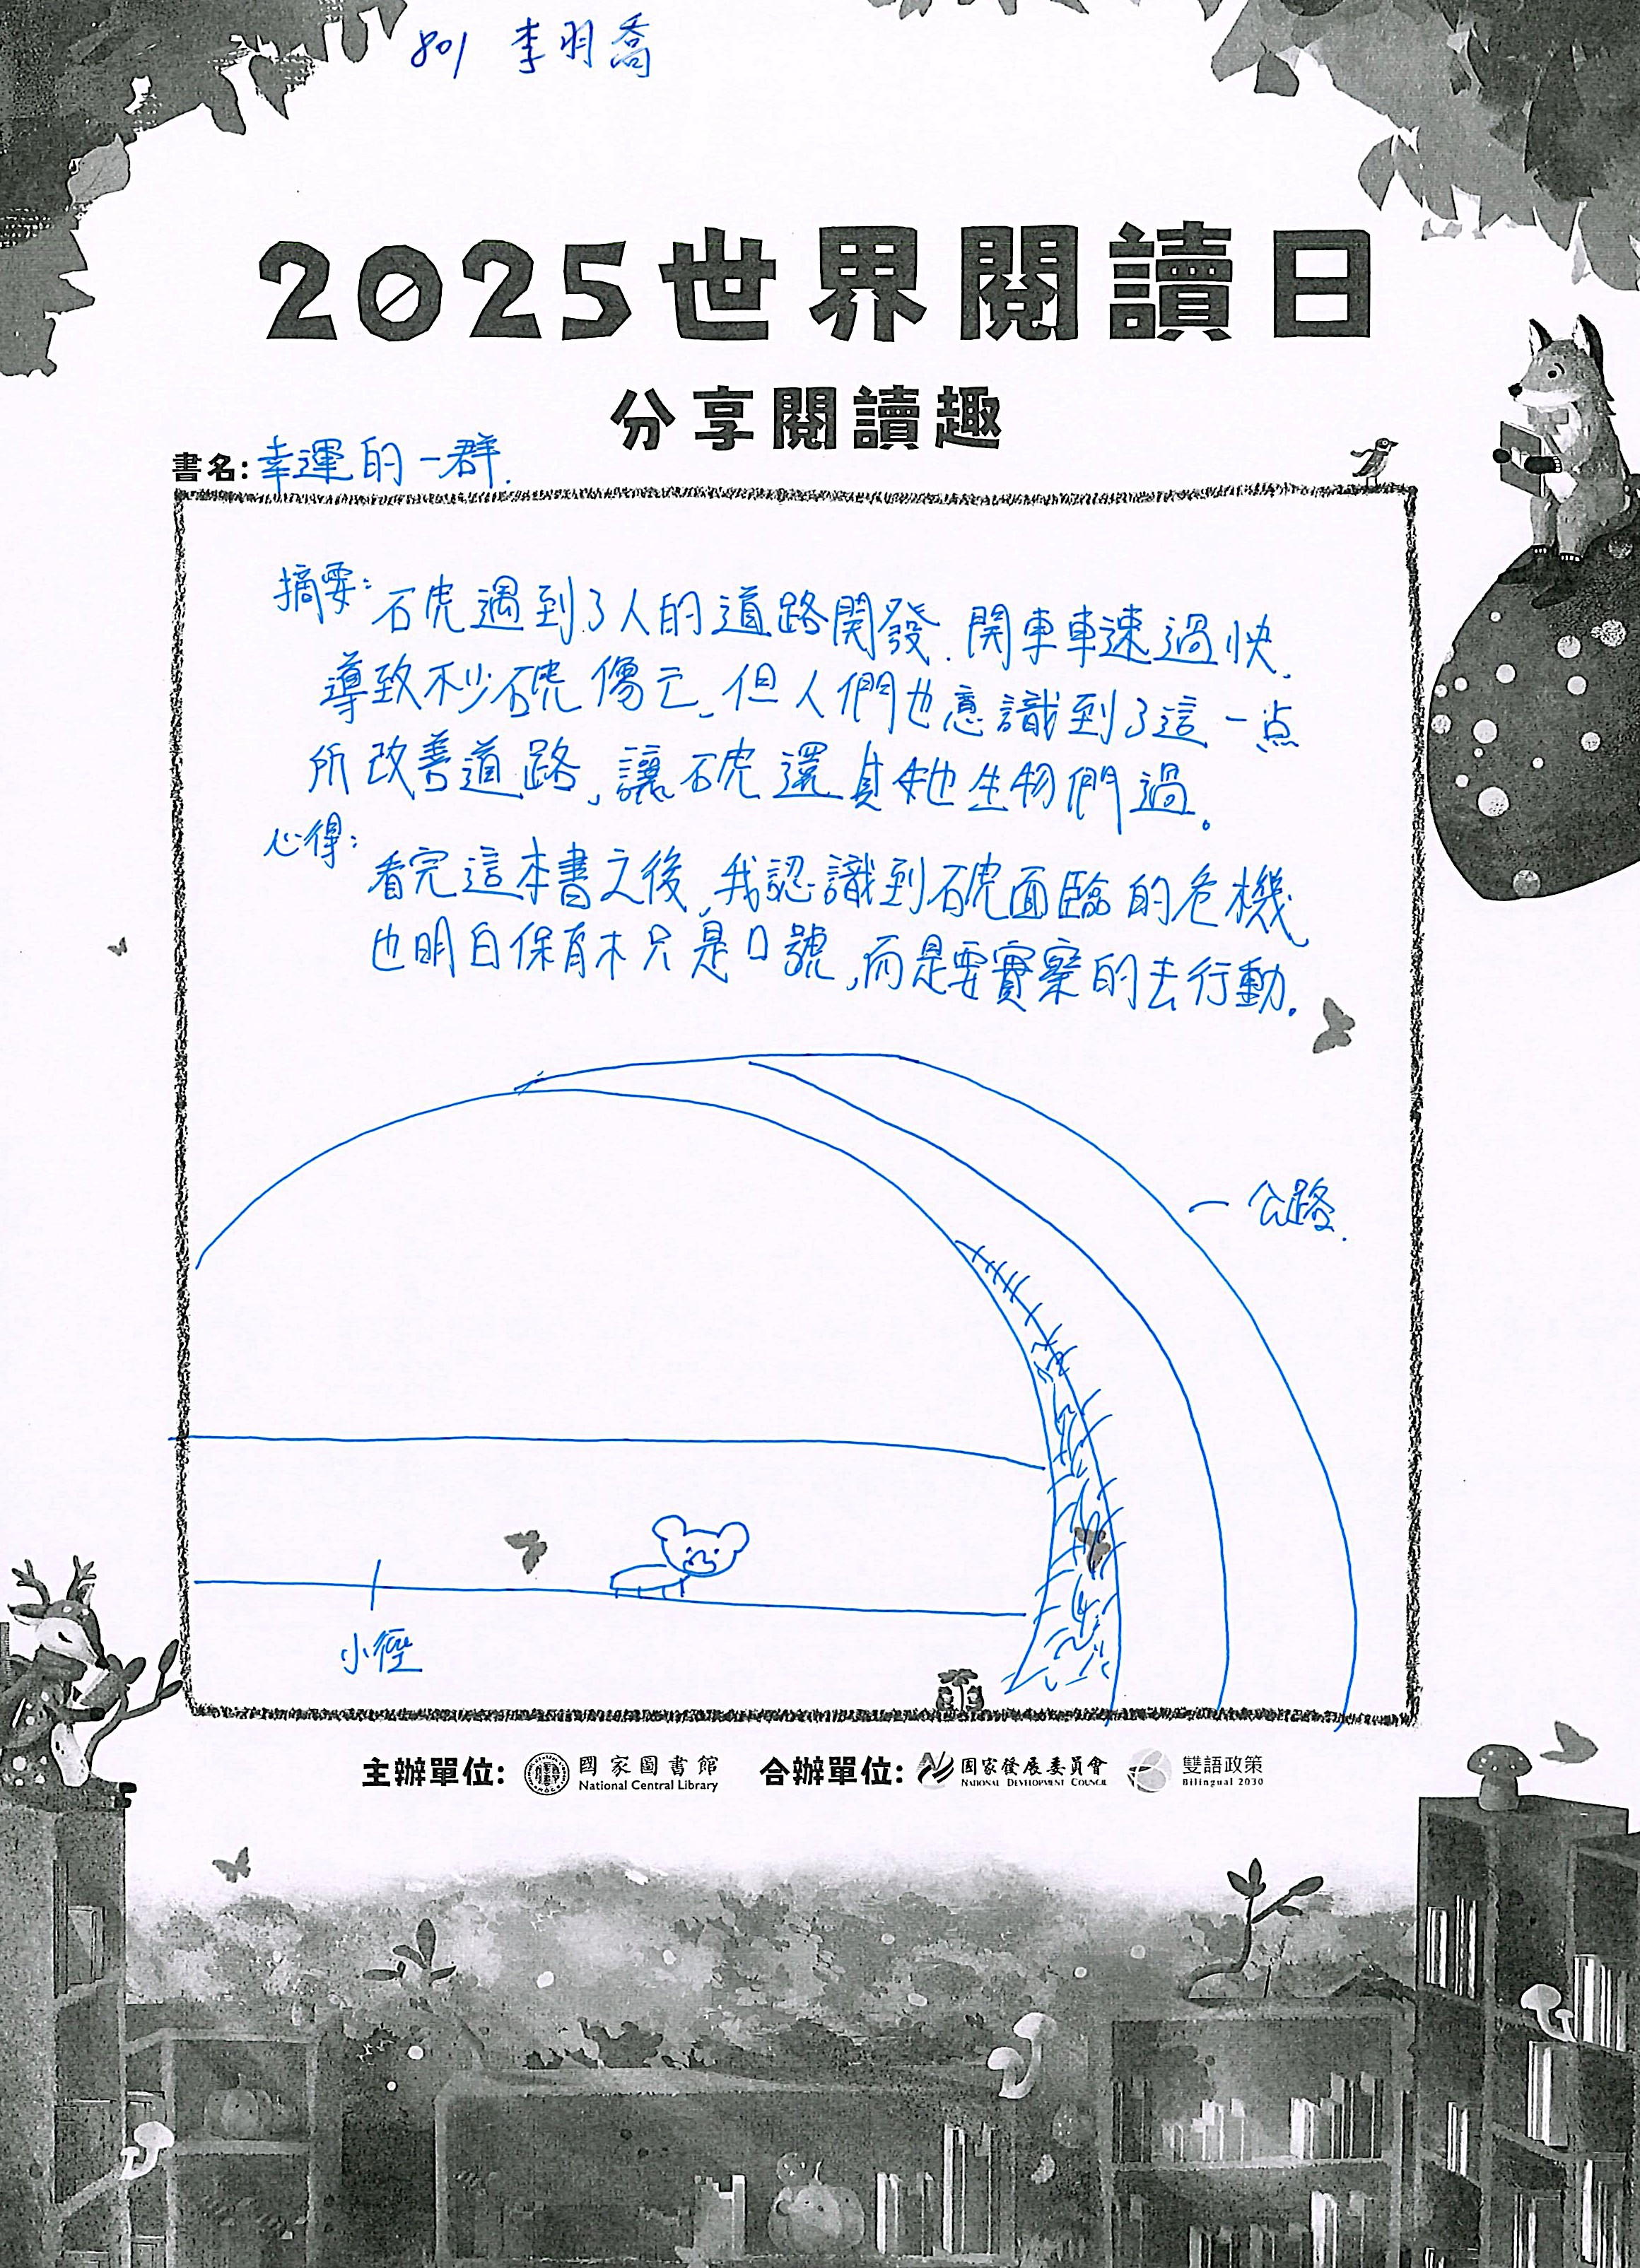 801 李羽喬
2025世界閱讀日
分享閱讀趣
書名:幸運的一群.
摘要:石虎遇到了人的道路開發.開車車速過快,
導致不少石虎傷亡,但人們也意識到了這一点
所改善道路,讓石虎還其他生物們過。
心得:
看完這本書之後,我認識到石虎面臨的危機,
也明白保育不只是口號,而是要實際的去行動.
一公路.
小徑
主辦單位: 國家圖書館 合辦單位: 國家發展委員會 雙語政策
National Central Library NATIONAL DEVELOPMENT COUNCIL Bilingual 2030